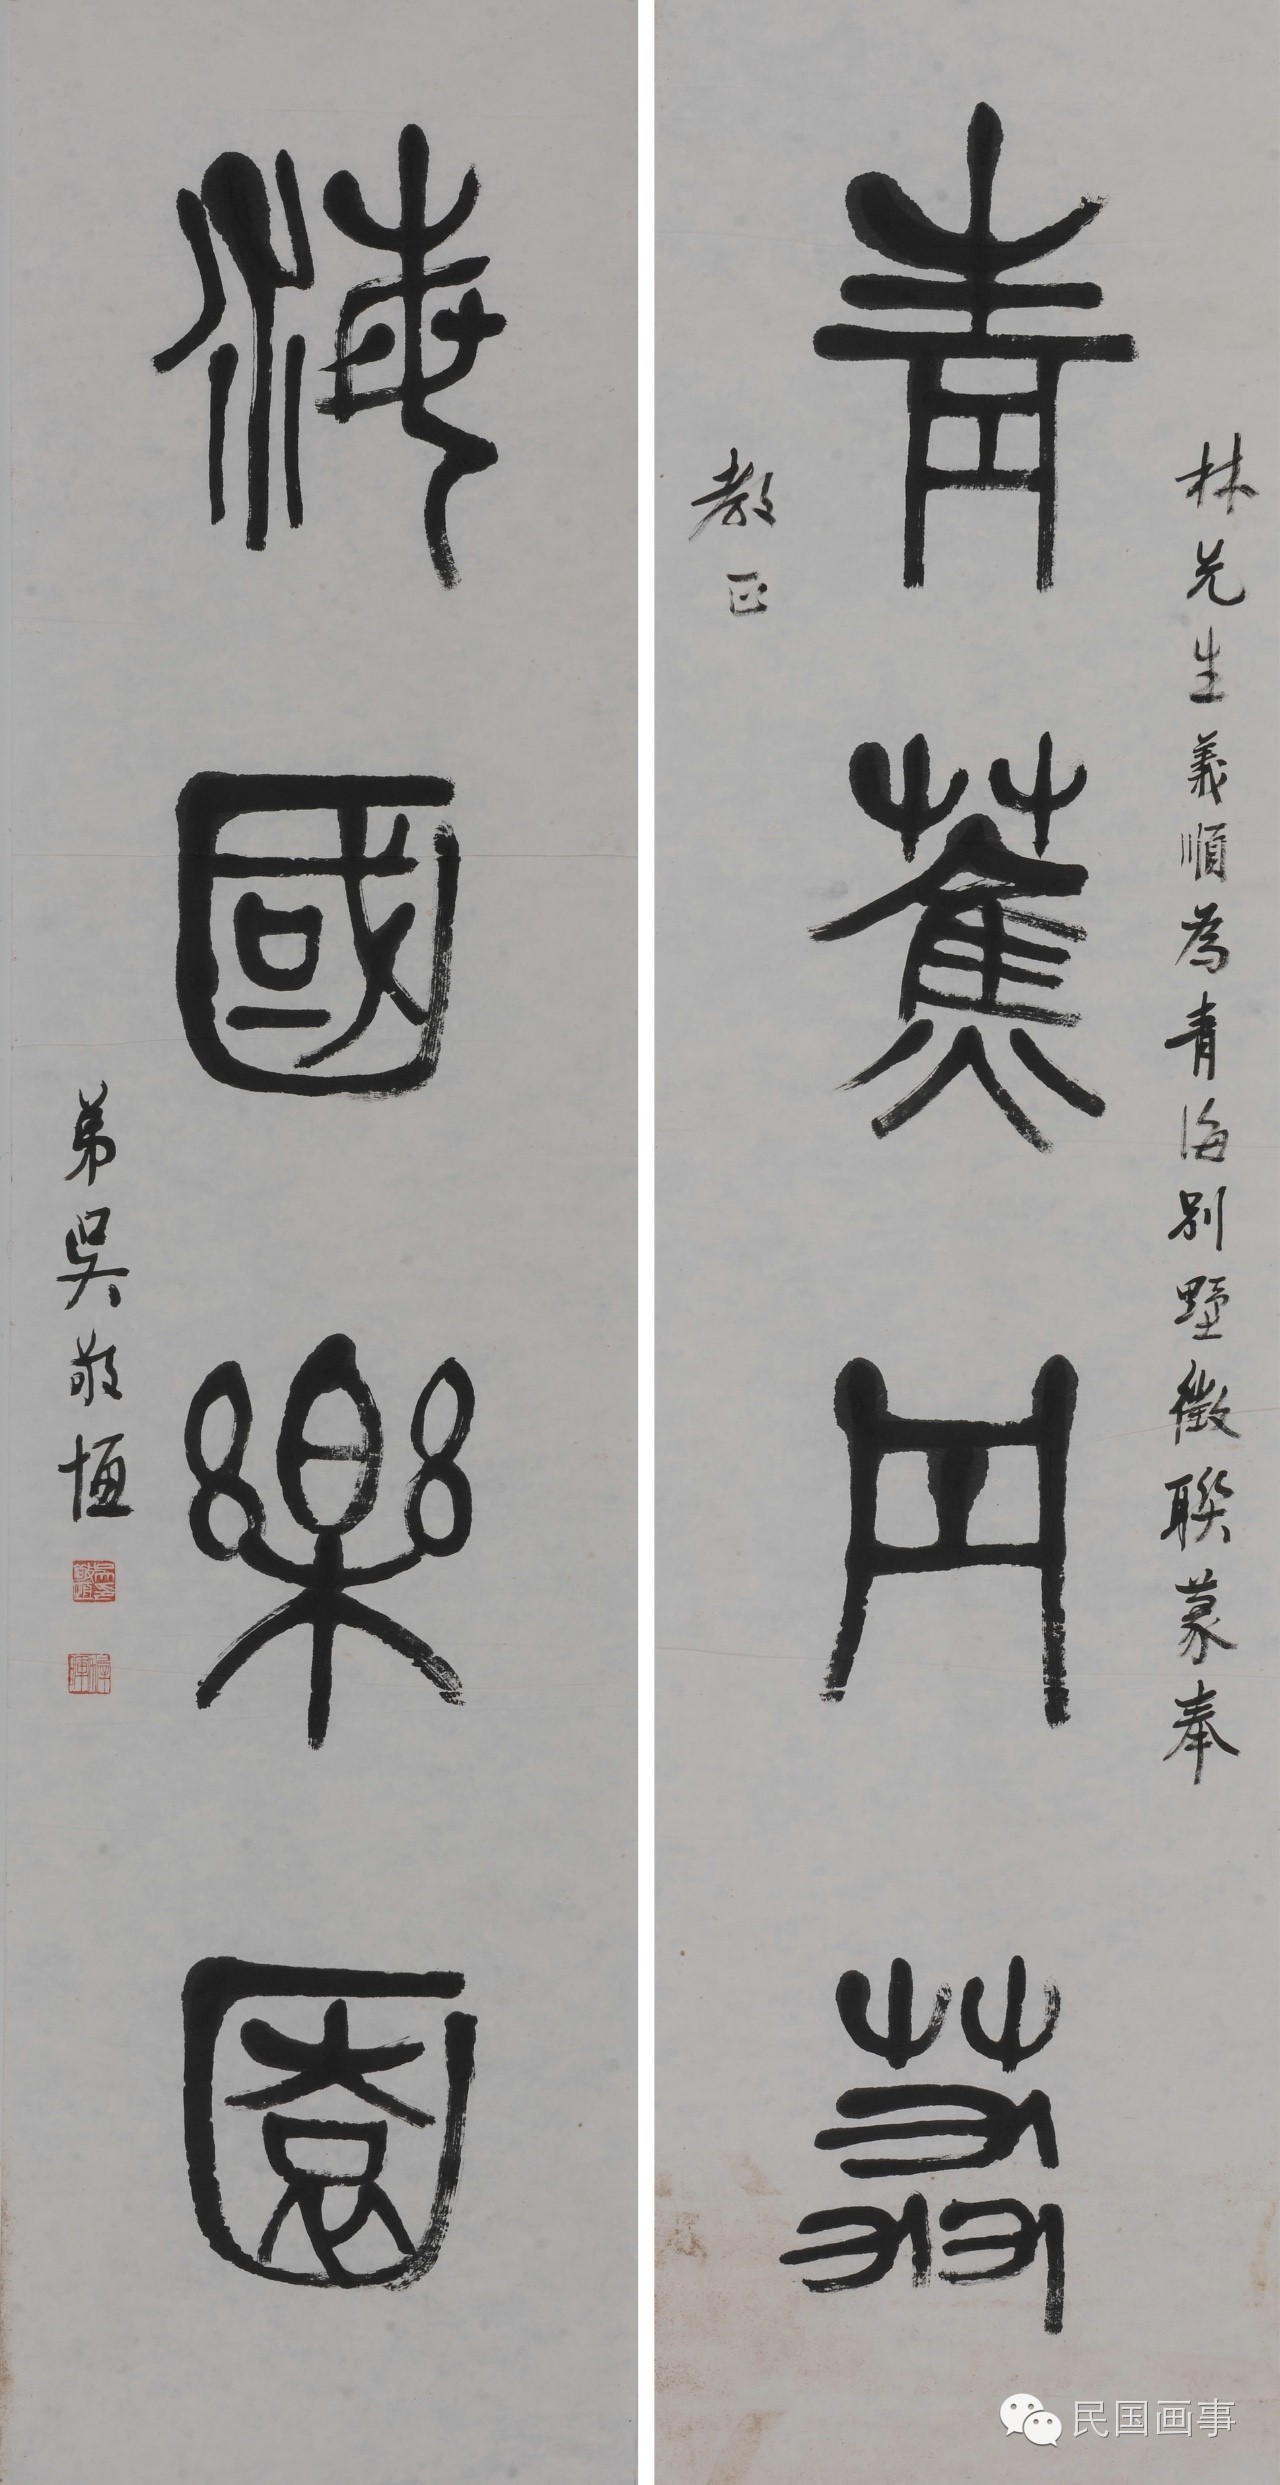 林先生義順為青海別墅徵聯篆奉
青蕉丹荔
教正
海國樂園
弟吳敬恒
民国画事